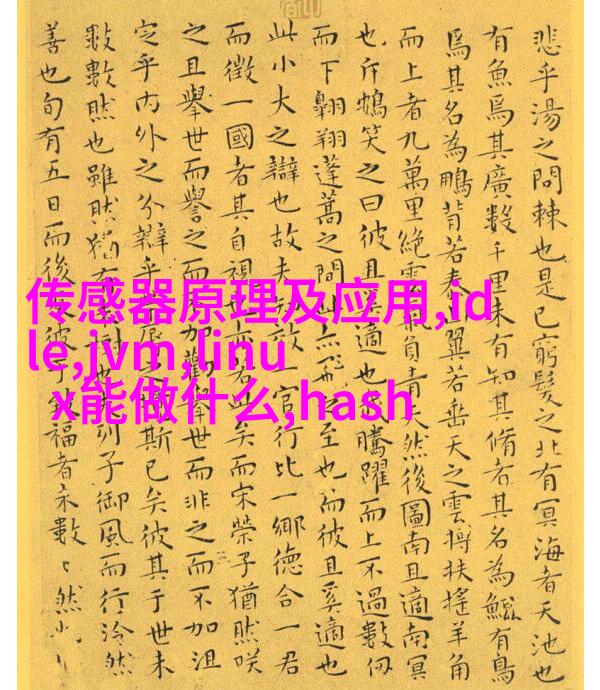 悲乎湯之問棘也是已窮髮之北有冥海者天池也
有魚焉其廣數千里未有知其脩者其名為鯤有鳥
焉其名為鵬背若泰翼若垂天之雲摶扶搖羊角
而上者九萬里絕雲氣負青天然後圖南且適南冥
也斥鴳笑之曰彼且奚適也騰躍而上不過數仞
而下翱翔蓬蒿之間此亦飛之至也而彼且奚適也
此小大之辯也故夫知效一官行比一鄉德合一君
而徵一國者其自視也亦若此矣而宋榮子猶然咲
之且舉世而譽之而不加勸舉世而非之而不加沮
定乎內外之分辯乎辱之斯已矣彼其于世未
數數然也雖然猶有未樹也列子御風而行泠然
善也旬有五日而後彼于致福者未數〻然
传感器原理及应用,id
le,jvm,linu
x能做什么,hash